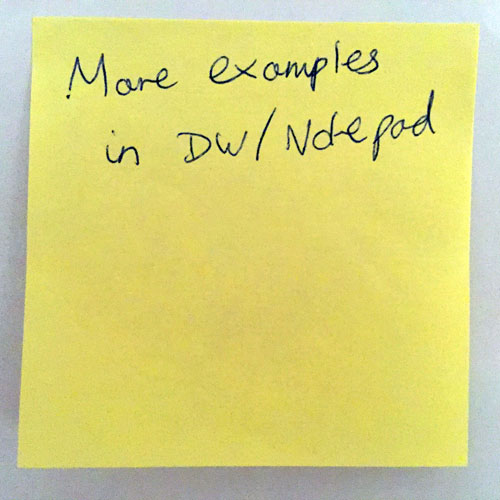 More examples
in DW/Notepad